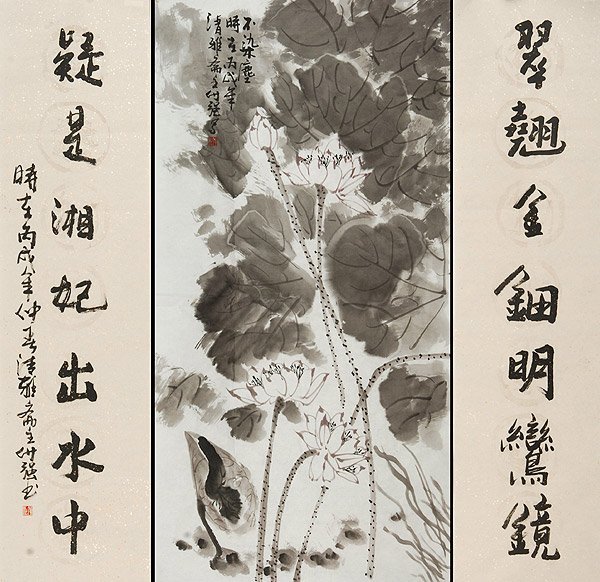 翠翹金鈿明鸞鏡
不染塵
時在丙戌年
清雅齋主强寫
疑是湘妃出水中
時在丙戌年仲春清雅齋主强書